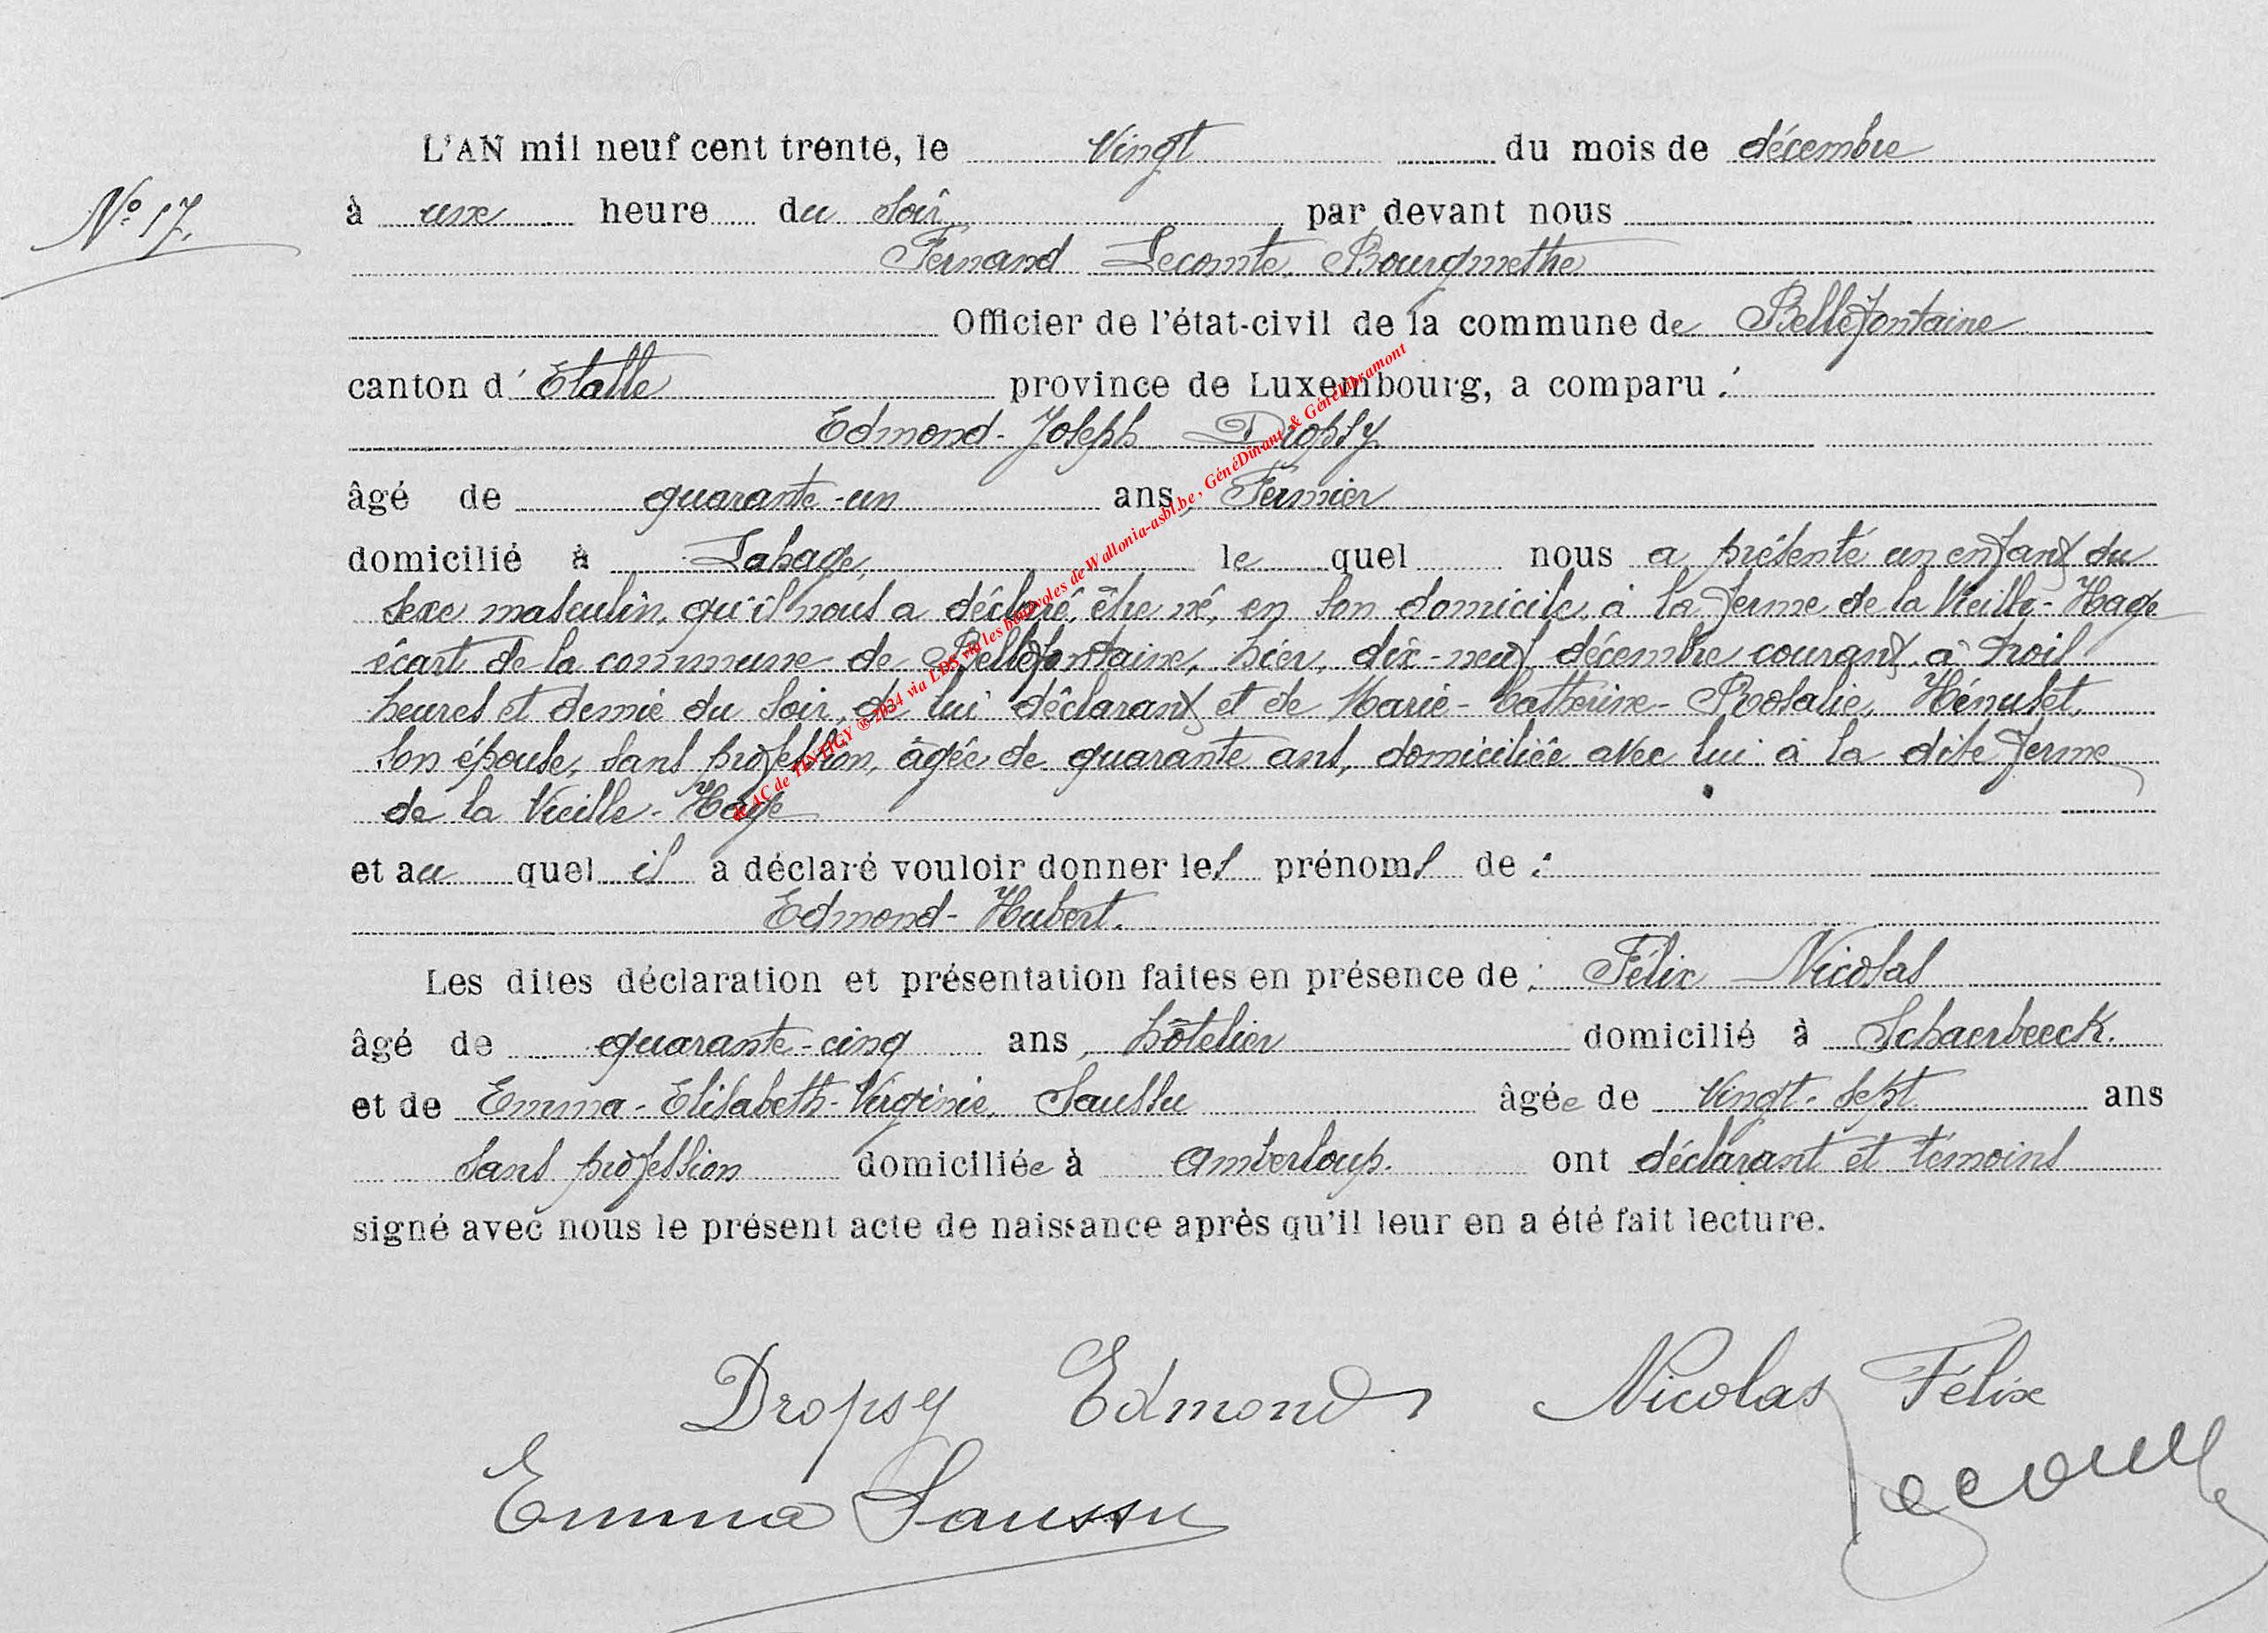 L'AN mil neuf cent trente, le vingt du mois de décembre
N° 17.
à une heure du soir par devant nous
Fernand Lecomte, Bourgmestre
Officier de l'état-civil de la commune de Bellefontaine
canton d'Etalle province de Luxembourg, a comparu :
Edmond-Joseph Dropsy
âgé de quarante-un ans, Fermier
domicilié à Lahage, le quel nous a présenté un enfant du
sexe masculin, qu'il nous a déclaré être né, en son domicile, à la ferme de la Vieille-Hage
écart de la commune de Bellefontaine, hier, dix-neuf décembre courant, à trois
heures et demie du soir, de lui déclarant et de Marie-Catherine-Rosalie, Hénuset,
son épouse, sans profession, âgée de quarante ans, domiciliée avec lui à la dite ferme
de la Vieille-Hage
et au quel il a déclaré vouloir donner les prénoms de :
Edmond-Hubert.
Les dites déclaration et présentation faites en présence de : Félix Nicolas
âgé de quarante-cinq ans, hôtelier domicilié à Schaerbeeck.
et de Emma-Elisabeth-Virginie, Saussu âgée de vingt-sept ans
sans profession domiciliée à Amberloup. ont déclarant et témoins
signé avec nous le présent acte de naissance après qu'il leur en a été fait lecture.
Dropsy Edmond Nicolas Félix
Emma Saussu
AC de TINTIGY ® 2024 via LDS via les bénévoles de Wallonia-asbl.be, GénéDinant & GénéLibramont